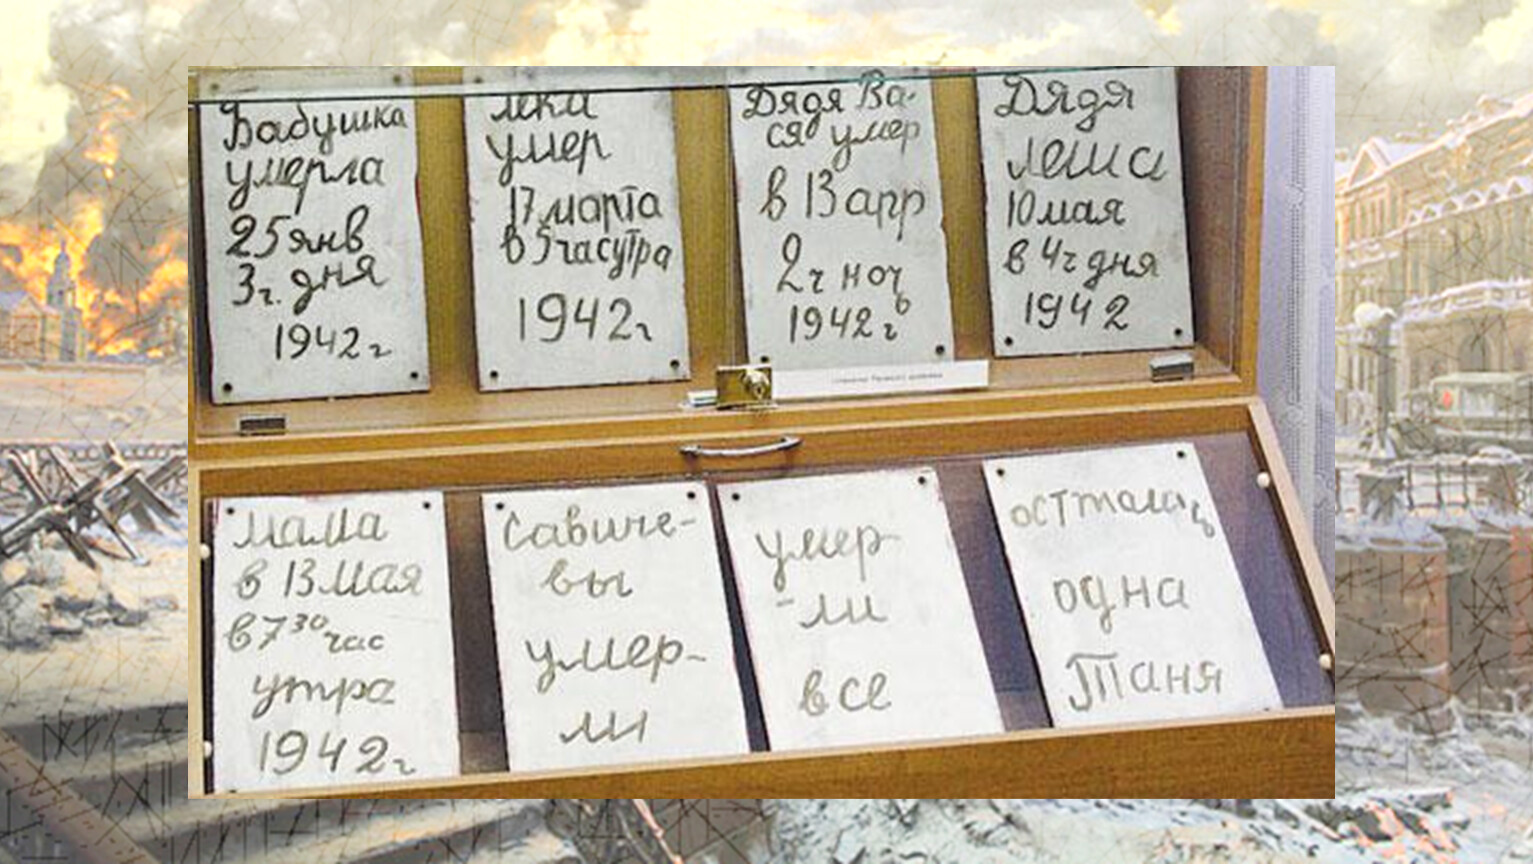 Бабушка
умерла
25 янв
3 ч. дня
1942 г
Лека
умер
17 марта
в 5 час утра
1942 г
Дядя Ва-
ся умер
в 13 апр
2 ч ночь
1942 г
Дядя
Леша
10 мая
в 4 ч дня
1942
Мама
в 13 мая
в 7 30 час
утра
1942 г
Савиче-
вы
умер-
ли
умер-
-ли
все
осттолась
одна
Таня